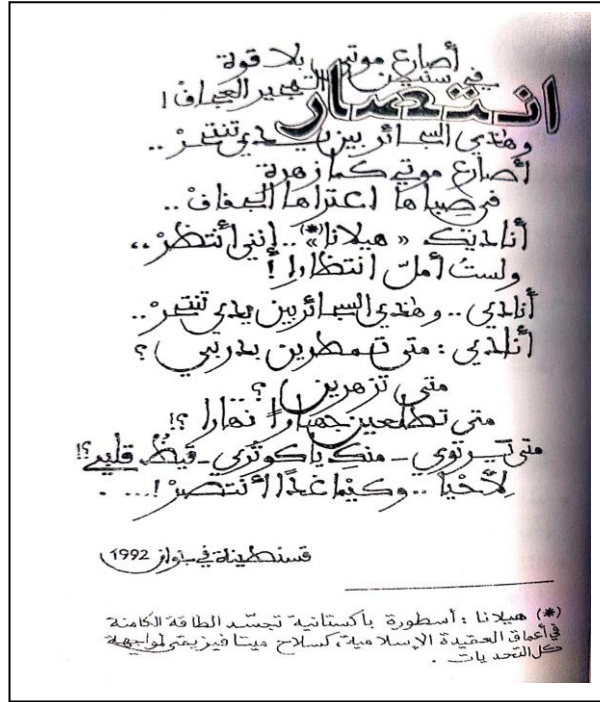 انتصار
أصارع موتي بلا قوة
في سنين الهجير العجاف !
وهذي السجائر بين يدي تنتحرْ ..
أصارع موتي كما زهرة
في صِباها اعتراها الجفافْ ..
أناديك « هيلانا(*)» .. إنني أنتظرْ ..
ولستُ أملّ انتظارا !
أنادي .. وهذي السجائر بين يدي تنتحرْ ..
أنادي : متى تمطرين بدربي ؟
متى تزهرين ؟
متى تطلعين جهارًا نهارا ؟!
متى يرتوي _ منكِ يا كوثري _ قيظُ قلبي ؟!
لِأحْيا .. وكيما غدًا أنتصرْ ! ... .
قسنطينة في جوان 1992
(*) هيلانا : أسطورة باكستانية تجسّد الطاقة الكامنة
في أعماق العقيدة الإسلامية، كسلاح ميتافيزيقي لمواجهة
كل التحديات .